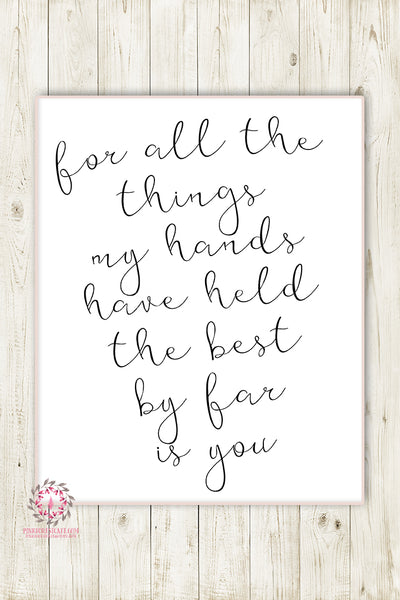 for all the
things
my hands
have held
the best
by far
is you